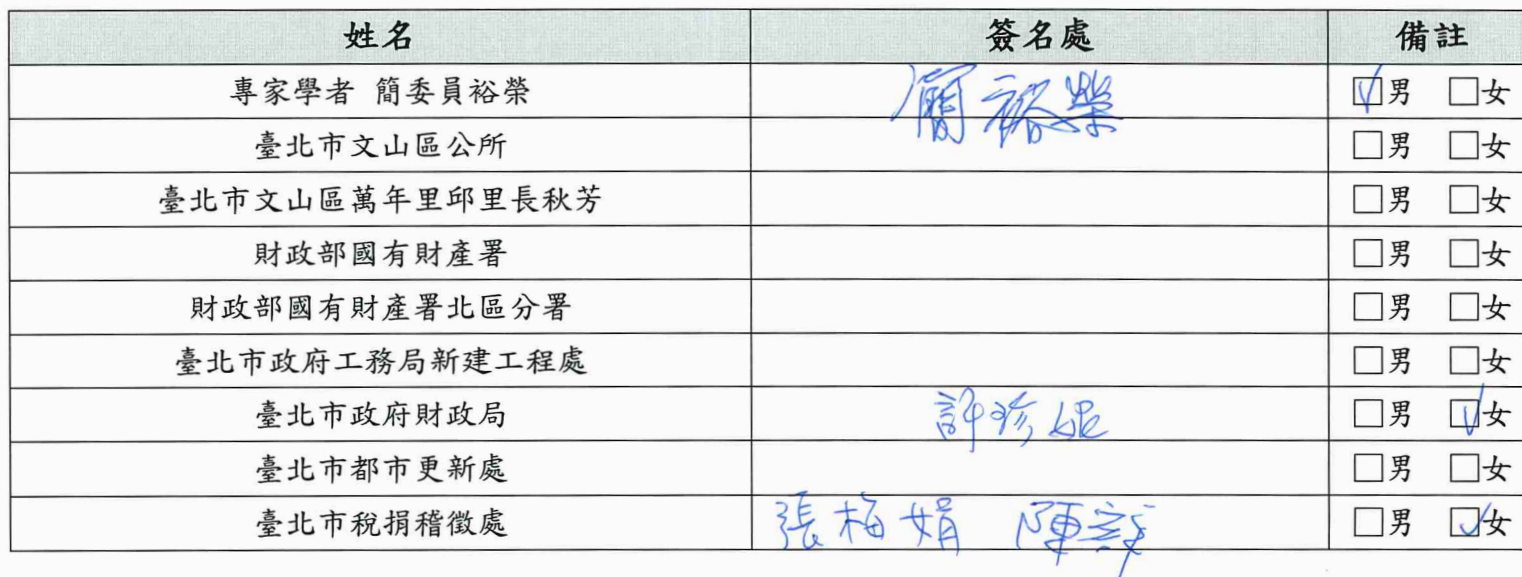 姓名 簽名處 備註
專家學者 簡委員裕榮 簡裕榮 ☑男 □女
臺北市文山區公所 □男 □女
臺北市文山區萬年里邱里長秋芳 □男 □女
財政部國有財產署 □男 □女
財政部國有財產署北區分署 □男 □女
臺北市政府工務局新建工程處 □男 □女
臺北市政府財政局 許珍妮 □男 ☑女
臺北市都市更新處 □男 □女
臺北市稅捐稽徵處 張梅娟 陳 □男 ☑女